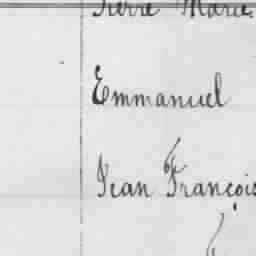 Pierre Marie
Emmanuel
Jean François